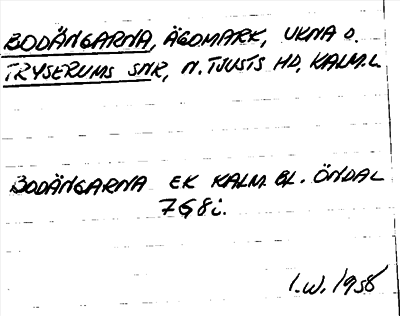 BODÄNGARNA, ÄGOMARK, UKNA O.
TRYSERUMS SNR, N. TJUSTS HD, KALM. L
BODÄNGARNA EK KALM. BL. ÖNDAL
7G8i.
I.W. 1958